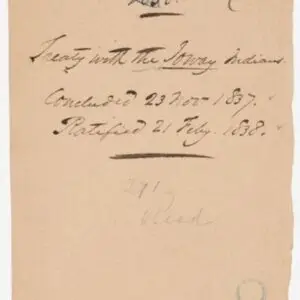 Treaty with the Ioway Indians
Concluded 23 Nov. 1837.
Ratified 21 Feby. 1838.